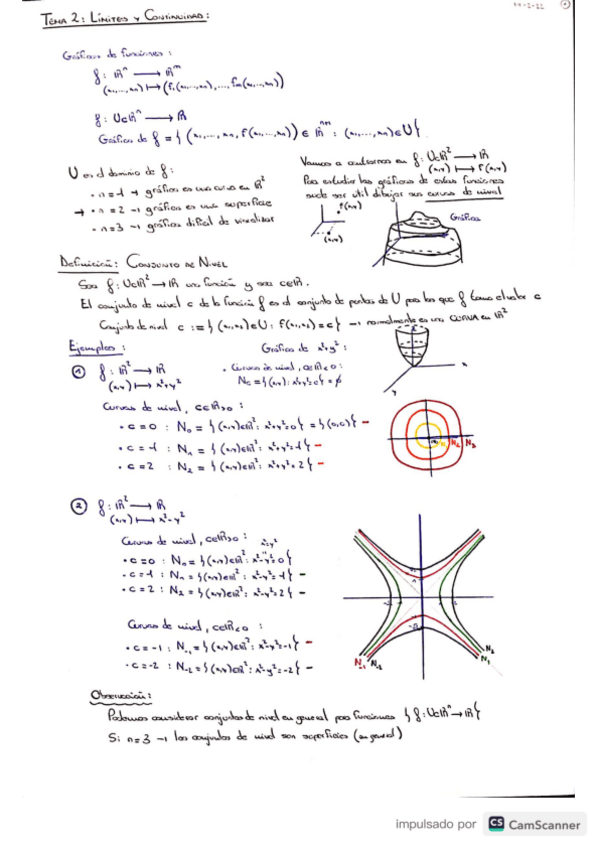 TEMA 2: LÍMITES Y CONTINUIDAD:
①
Gráficas de funciones:
f: ℝⁿ ⟶ ℝᵐ
(x₁,...,xₙ) ⟼ (f₁(x₁,...,xₙ),...,fₘ(x₁,...,xₙ))
f: U⊂ℝⁿ ⟶ ℝ
Gráfica de f = { (x₁,...,xₙ, f(x₁,...,xₙ)) ∈ ℝⁿ⁺¹ : (x₁,...,xₙ)∈U }.
U es el dominio de f:
· n=1 → gráfica es una curva en ℝ²
→ · n=2 → gráfica es una superficie
· n=3 → gráfica difícil de visualizar
Vamos a centrarnos en f: U⊂ℝ² ⟶ ℝ
(x,y) ⟼ f(x,y)
Para estudiar las gráficas de estas funciones
suele ser útil dibujar sus curvas de nivel
f(x,y)
(x,y)
Gráfica
Definición: CONJUNTO DE NIVEL
Sea f: U⊂ℝ² → ℝ una función y sea c∈ℝ.
El conjunto de nivel c de la función f es el conjunto de puntos de U para los que f toma el valor c
Conjunto de nivel c := { (x₁,x₂)∈U : f(x₁,x₂) = c } → normalmente es una CURVA en ℝ²
Ejemplos:
Gráfica de x²+y²:
① f: ℝ² ⟶ ℝ
(x,y) ⟼ x²+y²
· Curvas de nivel, c∈ℝ<0:
N_c = {(x,y): x²+y²=c} = ∅
x
y
Curvas de nivel, c∈ℝ>0:
· c=0 : N₀ = { (x,y)∈ℝ² : x²+y²=0 } = { (0,0) } –
· c=1 : N₁ = { (x,y)∈ℝ² : x²+y²=1 } –
· c=2 : N₂ = { (x,y)∈ℝ² : x²+y²=2 } –
② f: ℝ² ⟶ ℝ
(x,y) ⟼ x²-y²
Curvas de nivel, c∈ℝ>0:
x²=y²
· c=0 : N₀ = { (x,y)∈ℝ² : x²-y²=0 }
· c=1 : N₁ = { (x,y)∈ℝ² : x²-y²=1 } –
· c=2 : N₂ = { (x,y)∈ℝ² : x²-y²=2 } –
Curvas de nivel, c∈ℝ<0:
· c=-1 : N₋₁ = { (x,y)∈ℝ² : x²-y²=-1 } –
· c=-2 : N₋₂ = { (x,y)∈ℝ² : x²-y²=-2 } –
N₋₁ N₋₂
N₂
N₁
Observación:
Podemos considerar conjuntos de nivel en general para funciones { f: U⊂ℝⁿ → ℝ }
Si n=3 → los conjuntos de nivel son superficies (en general)
impulsado por CS CamScanner